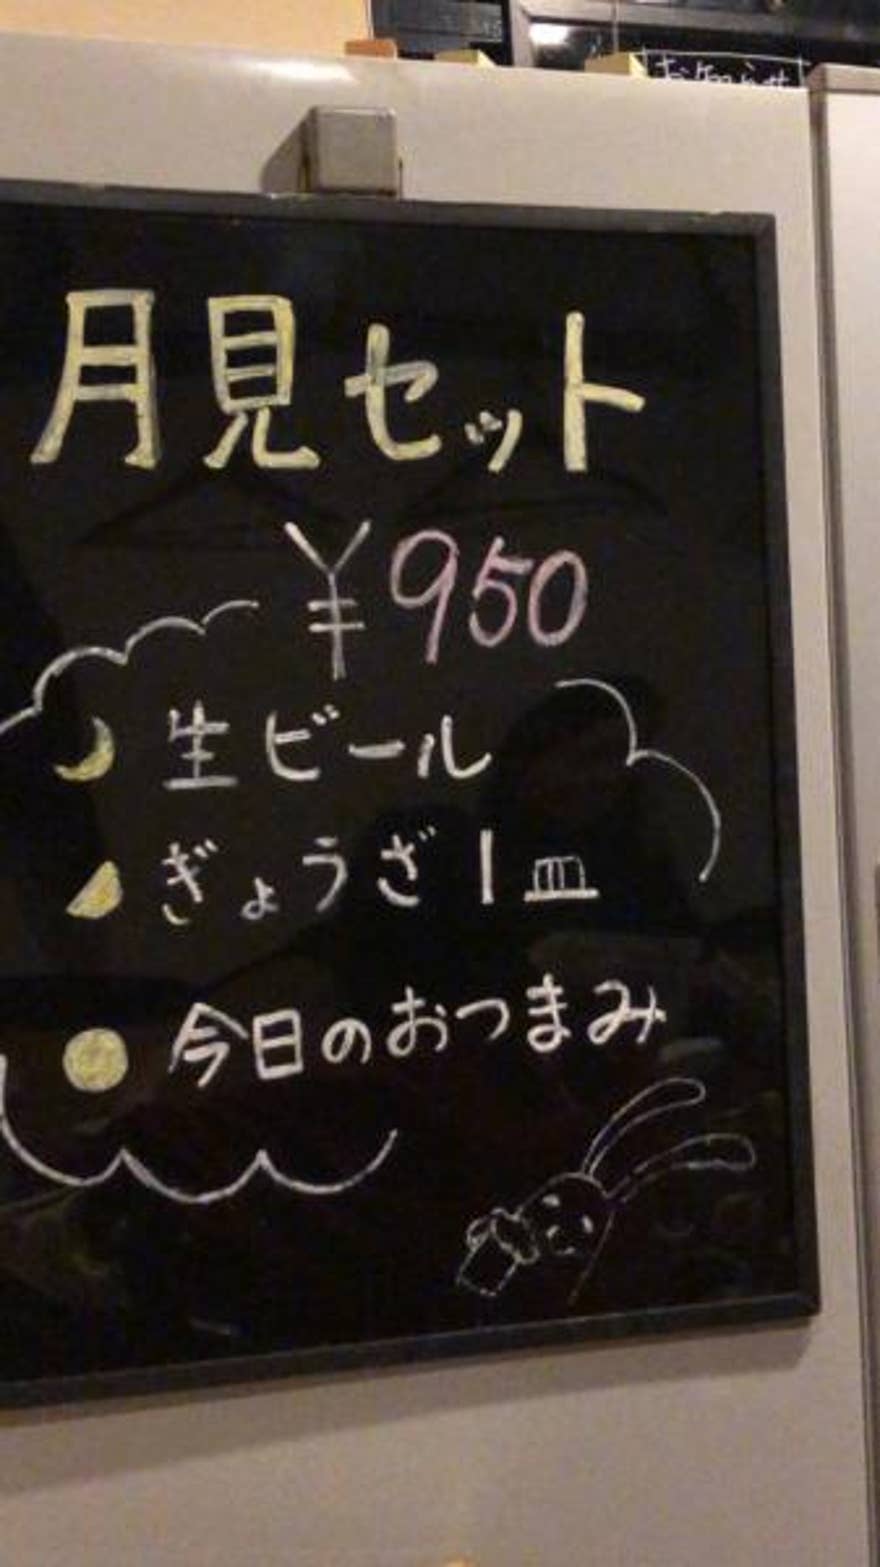 お知らせ
月見セット
¥950
生ビール
ぎょうざ1皿
今日のおつまみ